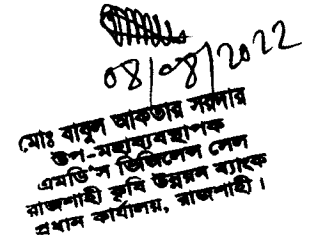 08/08/2022
মোঃ বাবুল আকতার সরদার
উপ-মহাব্যবস্থাপক
এমডি'স ভিজিলেন্স সেল
রাজশাহী কৃষি উন্নয়ন ব্যাংক
প্রধান কার্যালয়, রাজশাহী।